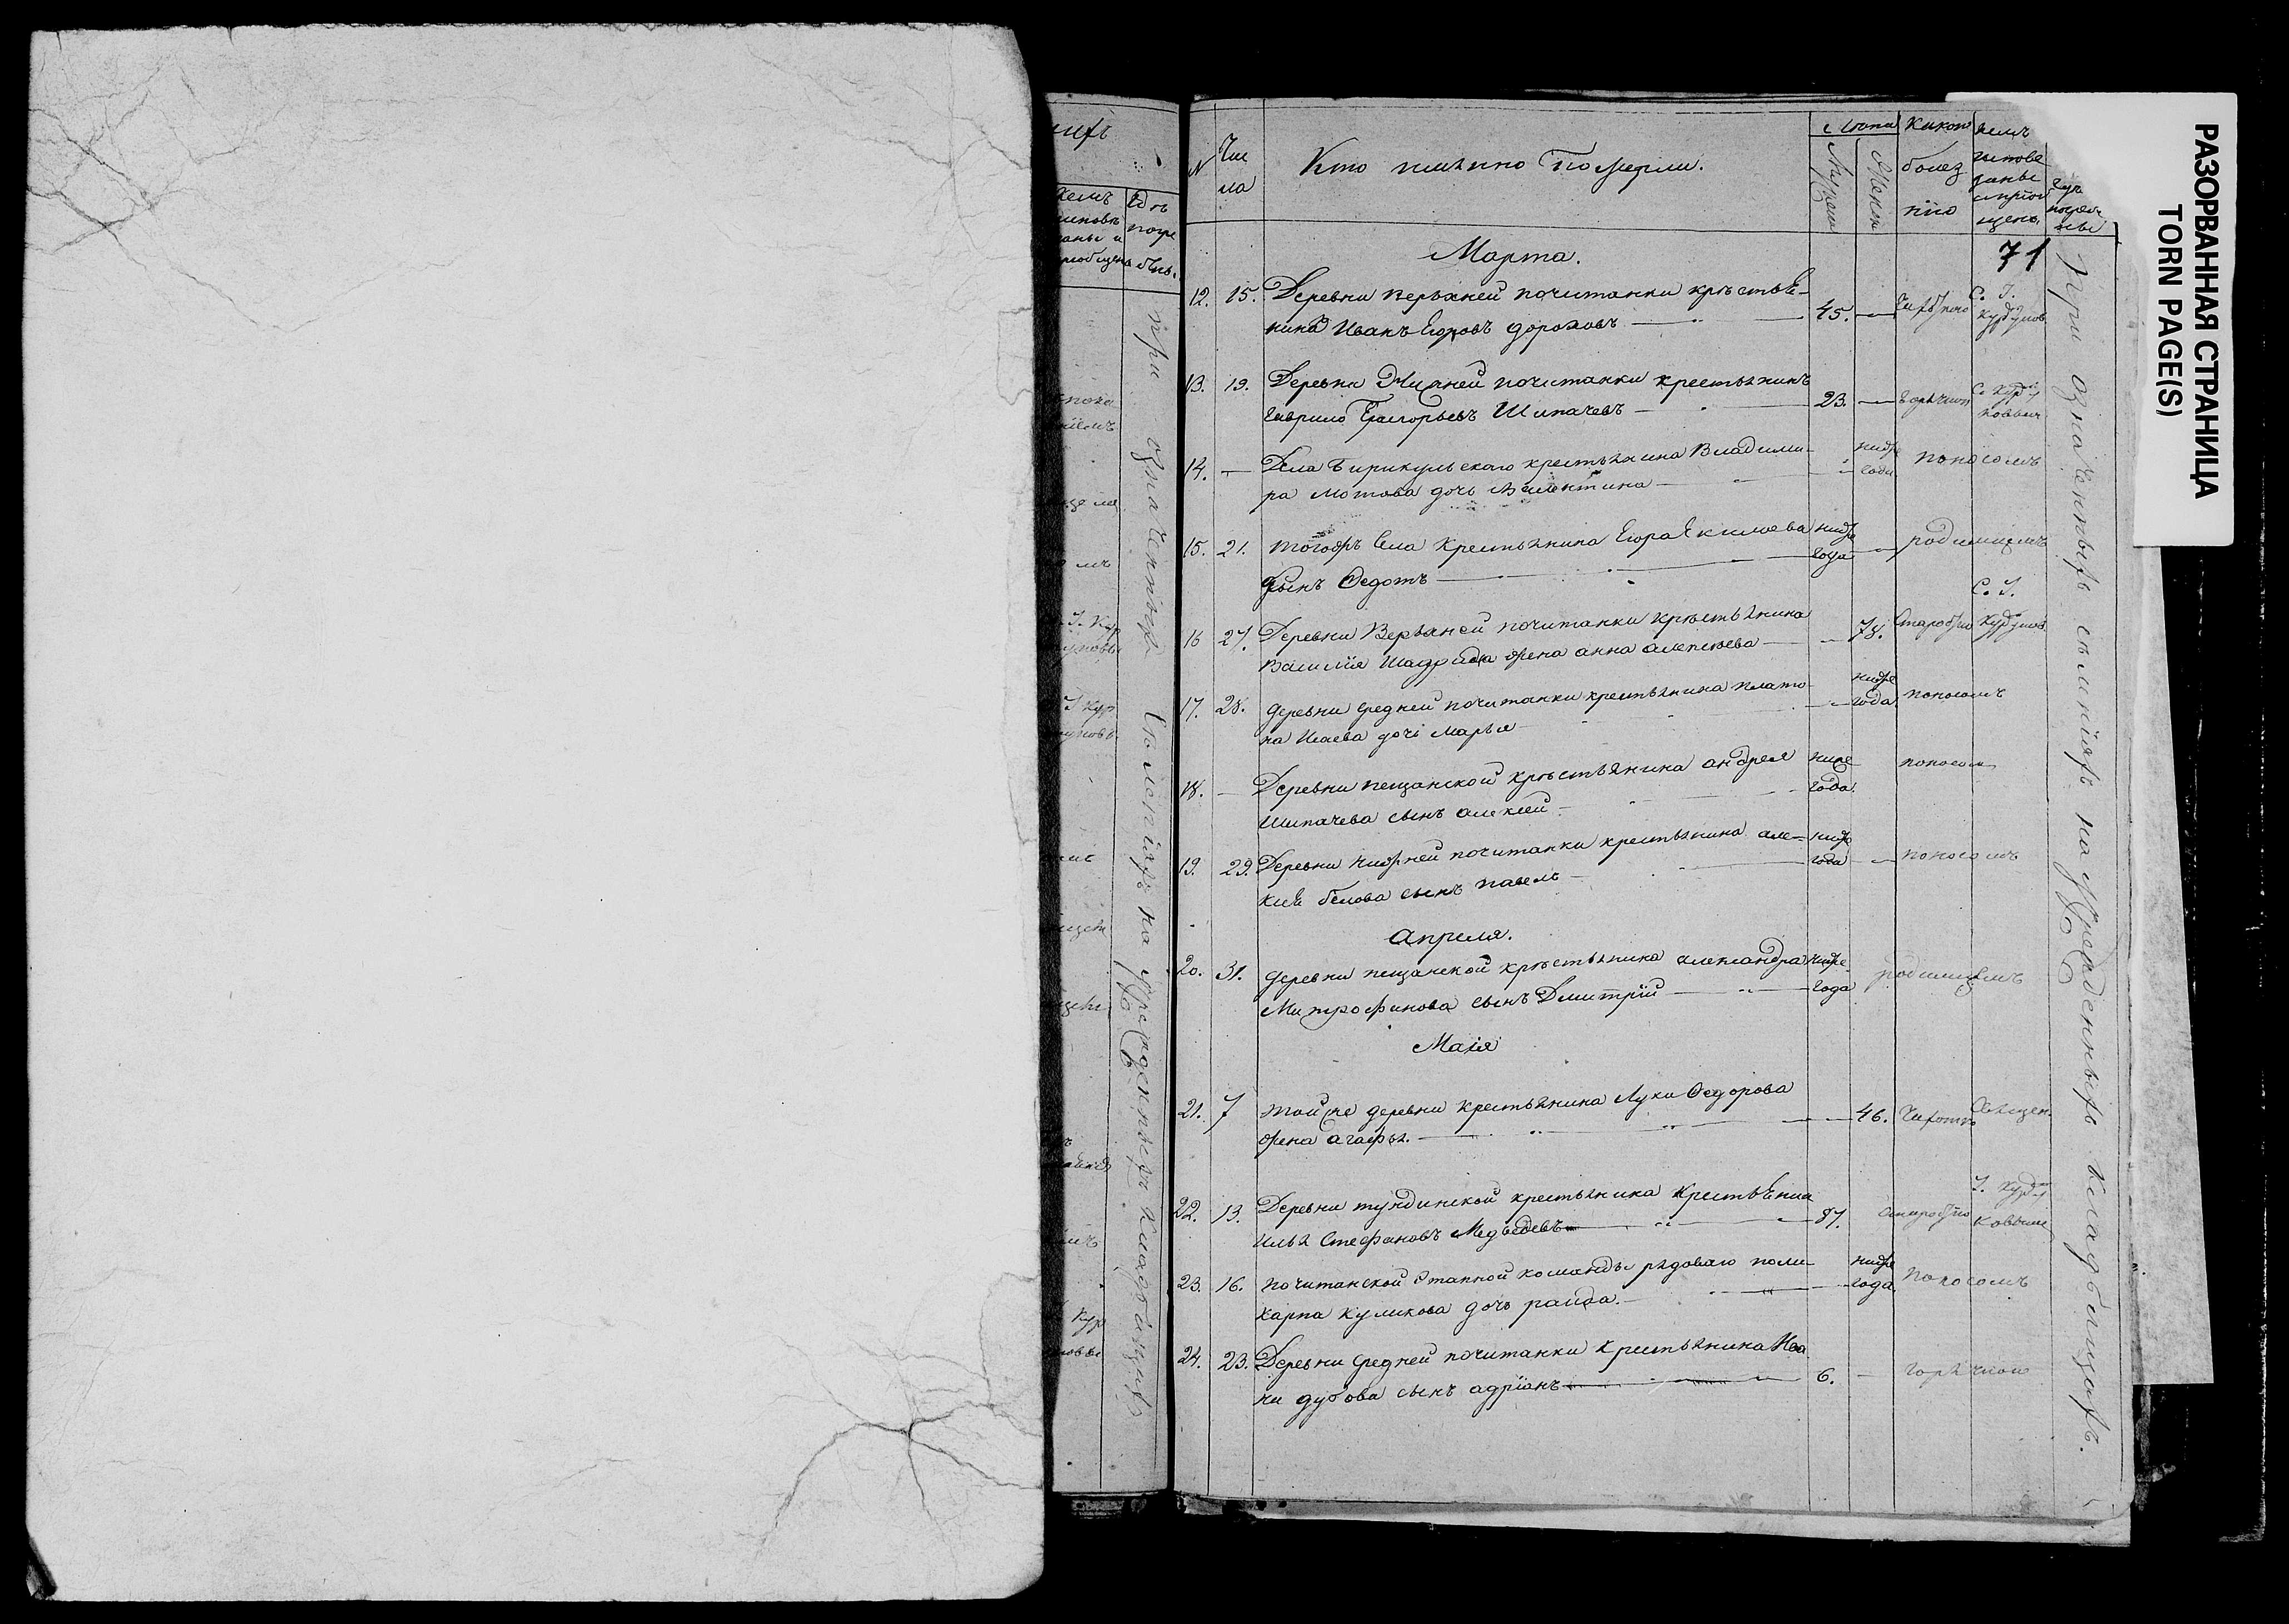 РАЗОРВАННАЯ СТРАНИЦА
TORN PAGE(S)
кемъ
Гдѣ
погре
бены.
при означенныхъ селенiяхъ на учрежденныхъ кладбищахъ
№
Чис
ла
Кто имянно Померли.
Лѣта
Мужеска
Женска
Какою
болез
нiю
Кемъ
исповe
даны
и прiоб
щены
Гдѣ
погре
бены
71
Марта.
12. 15. Деревни Верхней почитанки крестья-
нинъ Иванъ Егоровъ дороховъ 45. Чахоткою С. I.
Курдуков.
13. 19. Деревни Нижней почитанки крестьянинъ
Гаврило Григорьевъ Шипачевъ 23. Горячкою С. Курду
ковымъ
14. — Села Бирикульскаго крестьянина Владими-
ра Мотова дочь Валентина ниже
года поносомъ
15. 21. тогожъ села Крестьянина Егора Екимова ниже
сынъ Федотъ года родимцемъ
16 27. Деревни Верхней почитанки Крестьянина
Василiя жена анна алексеева 78. Старостiю С. I.
Курдуков.
17. 28. деревни средней почитанки крестьянина плато-
на Исаева дочь марья ниже
года поносомъ
18. — Деревни пещанской крестьянина андрея ниже
Шипачева сынъ алексей года. поносом
19. 29. Деревни нижней почитанки крестьянина але- ниже
ксея белова сынъ павелъ года поносомъ
Апреля.
20. 31. деревни пещанской крестьянина александра ниже
Митрофанова сынъ Дмитрiй года родимцемъ
Маiя
21. 7 той же деревни крестьянина Луки Федорова
жена агафья. 46. Чахотк Священ.
22. 13. Деревни тундинской крестьянина Крестьянин
Илья Стефановъ Медведевъ 87. Старостiю I. Курду
ковыме
23. 16. почитанской Етапной команды рядоваго поли-
карпа куликова дочь раида. ниже
года поносомъ
24. 23. Деревни средней почитанки крестьянина Ива
на дубова сынъ адрiанъ 6. горячкою
При означенныхъ селенiяхъ на учрежденныхъ кладбищахъ.